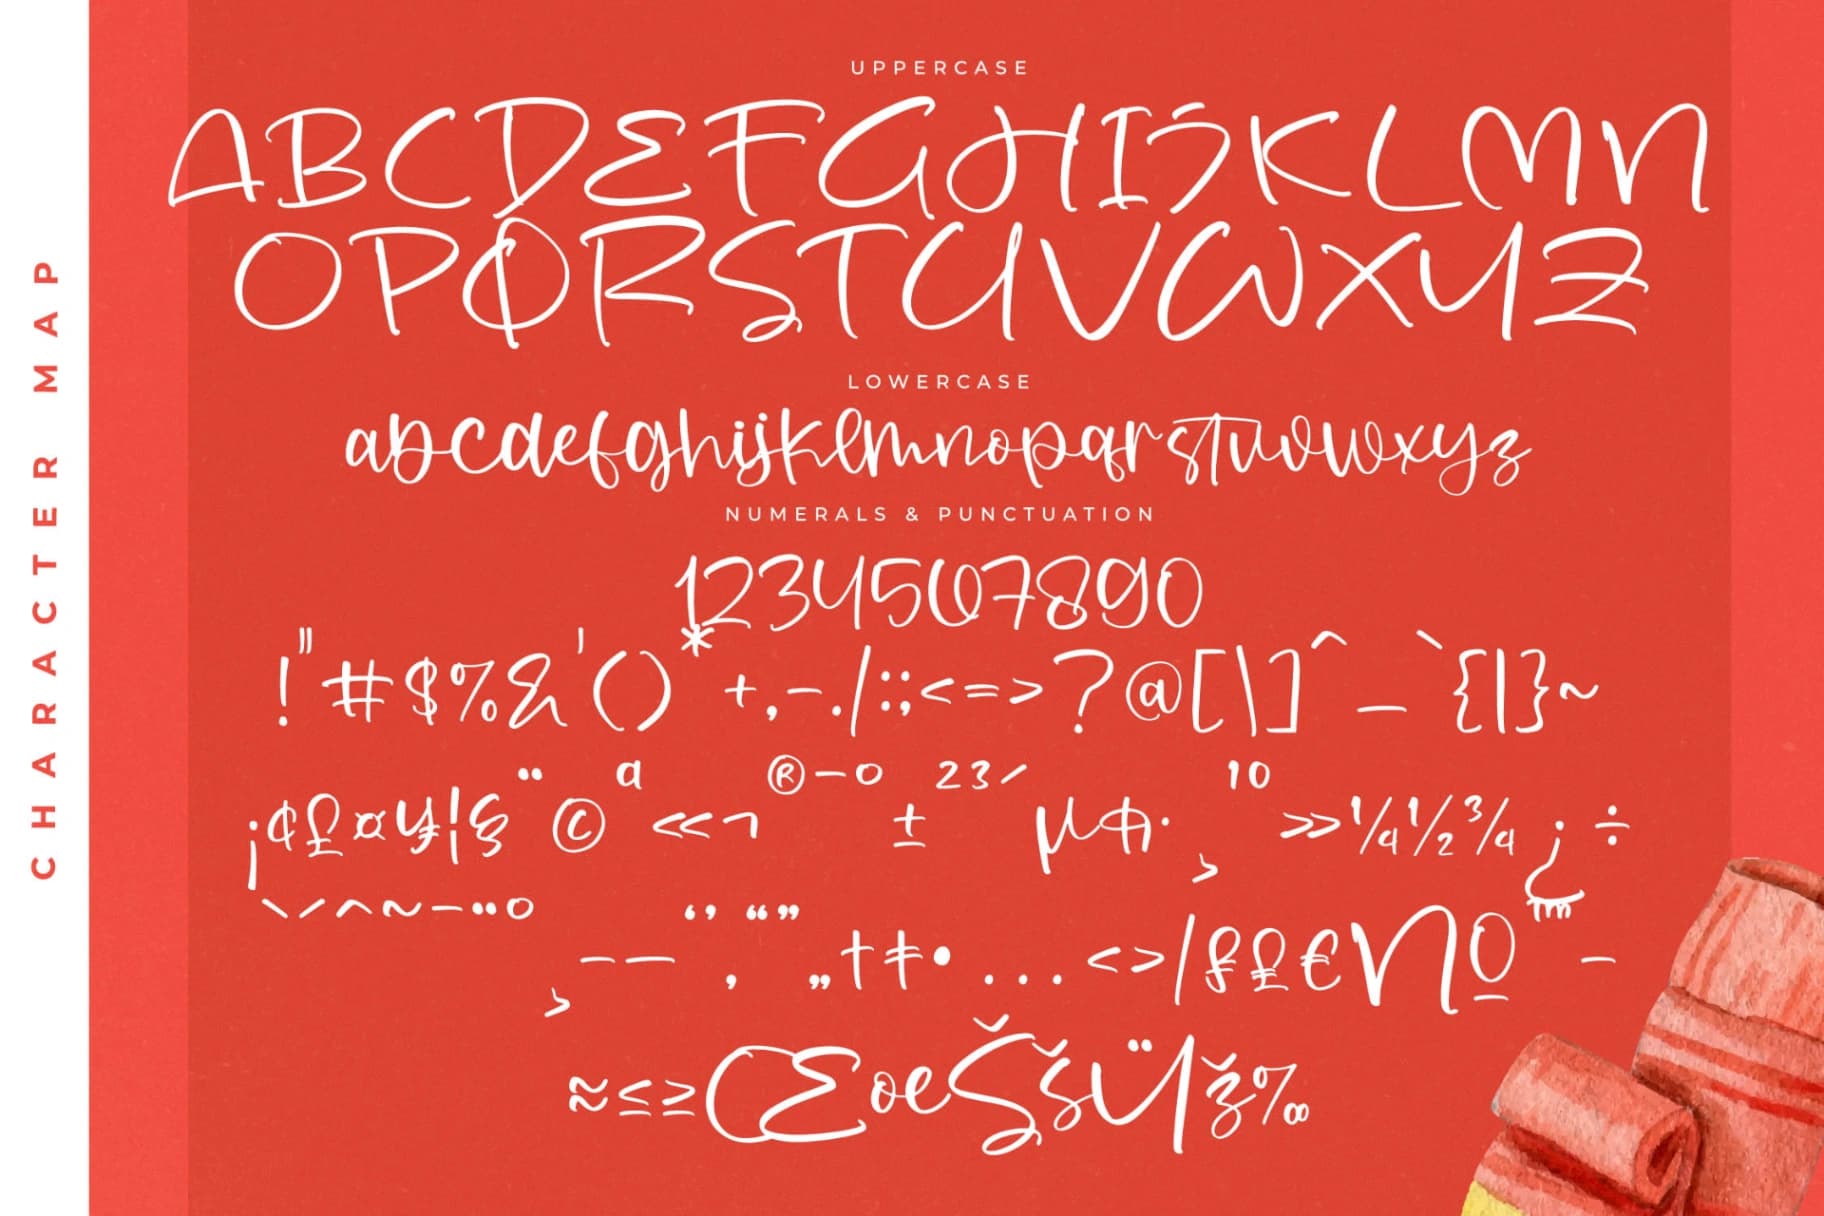 CHARACTER MAP
UPPERCASE
ABCDEFGHIJKLMN
OPQRSTUVWXYZ
LOWERCASE
abcdefghijklmnopqrstuvwxyz
NUMERALS & PUNCTUATION
1234567890
!"#$%&'()*+,-./:;<=>?@[\]^_`{|}~
¡¢£¤¥¦§¨©ª«¬®¯°±²³´µ¶·¸¹º»¼½¾¿÷
ˋˊˆ˜¯¨˚¸–—‘’‚“”„†‡•...‹›⁄₤£€Nº™−
≈≤≥ŒœŠšŸž‰